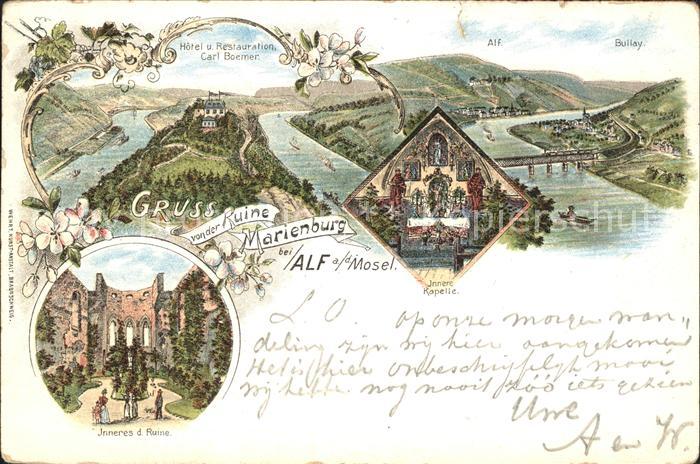 Hôtel u. Restauration,
Carl Boemer.
Alf.
Bullay.
GRUSS
von der Ruine
Marienburg
bei ALF a/d Mosel.
Innere
Kapelle.
Inneres d. Ruine.
L. O. op onze morgen wan=
deling zijn wij hier aangekomen
Het is hier onbeschrijfelijk mooi
wij hebben nog nooit zoo iets gezien
Uwe
A en W.